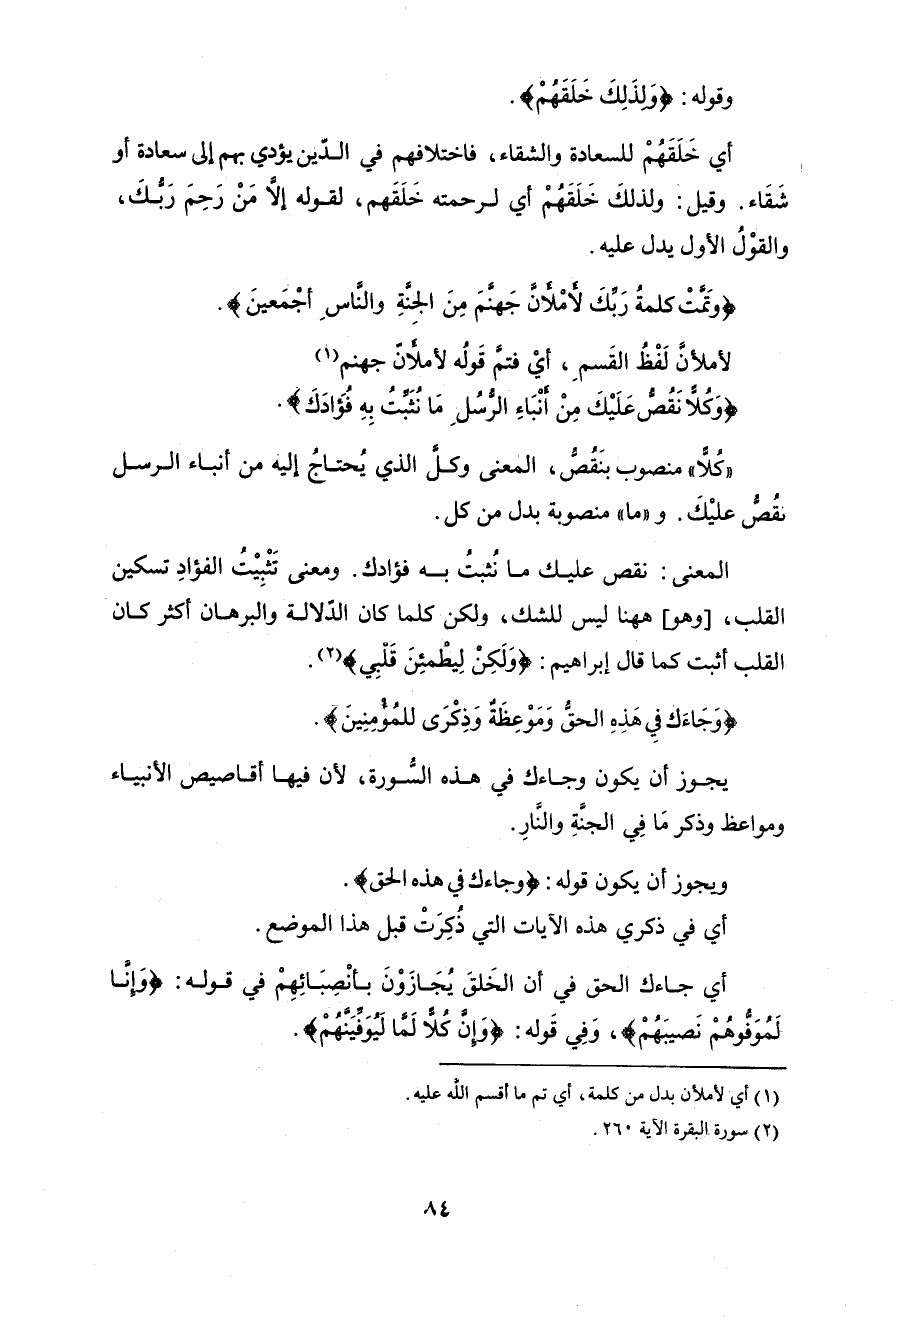 وقوله: ﴿وَلِذَلِكَ خَلَقَهُمْ﴾.
أي خَلَقَهُمْ للسعادة والشقاء، فاختلافهم في الدّين يؤدي بهم إلى سعادة أو
شَقَاء. وقيل: ولذلكَ خَلَقَهُمْ أي لرحمته خَلَقَهم، لقوله إلَّا مَنْ رَحِمَ رَبُّكَ،
والقوْلُ الأول يدل عليه.
﴿وتَمَّتْ كلمةُ رَبِّكَ لأَمْلأَنَّ جَهنَّمَ مِنَ الجِنَّةِ والنَّاسِ أجْمَعينَ﴾.
لأملأنَّ لَفْظُ القَسمِ، أيْ فتمَّ قَولُه لأملأنّ جهنم(١)
﴿وَكُلًّا نَقُصُّ عَلَيْكَ مِنْ أَنْبَاءِ الرُّسُلِ مَا نُثَبِّتُ بِهِ فُؤَادَكَ﴾.
«كُلًّا» منصوب بنَقُصُّ، المعنى وكلَّ الذي يُحتاجُ إليه من أنباء الرسل
نقُصُّ عليْكَ. و «ما» منصوبة بدل من كل.
المعنى: نقص عليك ما نُثبتُ به فؤادك. ومعنى تَثْبِيْتُ الفؤادِ تسكين
القلب، [وهو] ههنا ليس للشك، ولكن كلما كان الدّلالة والبرهان أكثر كان
القلب أثبت كما قال إبراهيم: ﴿وَلَكِنْ لِيَطْمئِنَ قَلْبِي﴾(٢).
﴿وَجَاءَكَ في هَذِهِ الحقُّ وَمَوْعِظَةٌ وَذِكْرَى للمُؤْمِنِينَ﴾.
يجوز أن يكون وجاءك في هذه السُّورة، لأن فيها أقاصيص الأنبياء
ومواعظ وذكر مَا فِي الجنَّةِ والنَّارِ.
ويجوز أن يكون قوله: ﴿وجاءك في هذه الحق﴾.
أي في ذكري هذه الآيات التي ذُكِرَتْ قبل هذا الموضع.
أي جاءك الحق في أن الخَلقَ يُجَازَوْنَ بأنْصِبَائِهِمْ في قوله: ﴿وَإِنَّا
لَمُوَفُّوهُمْ نَصيبَهُمْ﴾، وَفِي قَوله: ﴿وَإِنَّ كُلًّا لَمَّا لَيُوَفِّيَنَّهُمْ﴾.
(١) أي لأملأن بدل من كلمة، أي تم ما أقسم اللّه عليه.
(٢) سورة البقرة الآية ٢٦٠.
٨٤